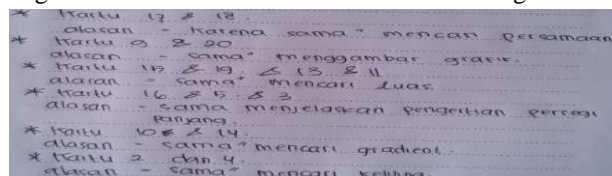 * Kartu 17 & 18.
alasan - karena sama" mencari persamaan
* Kartu 9 & 20
alasan - sama" menggambar grafik.
* Kartu 15 & 19 & 13 & 11
alasan - sama" mencari luas.
* Kartu 16 & 5 & 3
alasan - sama menjelaskan pengertian persegi
panjang.
* Kartu 10 & 14.
alasan - sama" mencari gradient.
* Kartu 2 dan 4.
alasan - sama" mencari keliling.